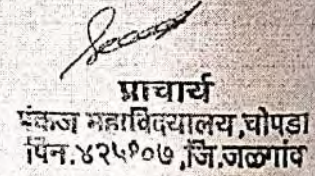 प्राचार्य
पंकज महाविद्यालय,चोपडा
पिन.४२५१०७,जि.जळगांव